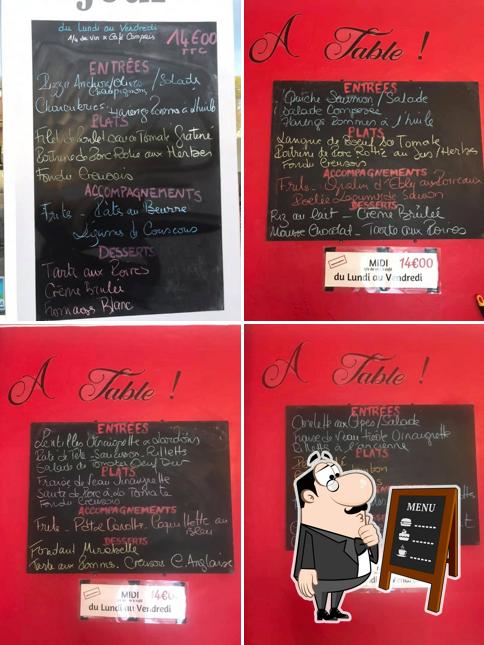 du Lundi au Vendredi
1/4 de Vin & Café Compris
14€00
TTC
ENTRÉES
Pizza Anchois/Olives /Salade
Champignons
Charcuteries. Harengs Pommes à l'huile
PLATS
Filet de Poulet sauce Tomate Gratiné
Poitrine de Porc Rotie aux Herbes
Fondu Creusois
ACCOMPAGNEMENTS
Frites - Pâtes au Beurre
Légumes de Couscous
DESSERTS
Tarte aux Poires
Crème Brulée
Fromage Blanc
A Table !
ENTRÉES
Quiche Saumon / Salade
Salade Composée
Harengs Pommes à l'huile
PLATS
Langue de Boeuf Sce Tomate
Poitrine de Porc Rotie au Jus/Herbes
Fondu Creusois
ACCOMPAGNEMENTS
Frites - Gratin d'Ebly aux Poireaux
Poêlée Légumes de Saison
DESSERTS
Riz au lait - Crème Brulée
Mousse Chocolat - Tarte aux Poires
MIDI 14€00
du Lundi au Vendredi
A Table !
ENTRÉES
Lentilles Vinaigrette aux Lardons
Pâté de Tête - Saucisson - Rillettes
Salade de Tomates Oeuf Dur
PLATS
Fraise de Veau Vinaigrette
Sauté de Porc à la Tomate
Fondu Creusois
ACCOMPAGNEMENTS
Frites - Poêlée Carotte - Coquillette au
Beurre
DESSERTS
Fondant Mirabelle
Tarte aux Pommes. Creusois C. Anglaise
MIDI 14€0
du Lundi au Vendredi
A Table !
ENTRÉES
Omelette aux Cèpes/Salade
Vinaigrette
à l'ancienne
PLATS
MENU